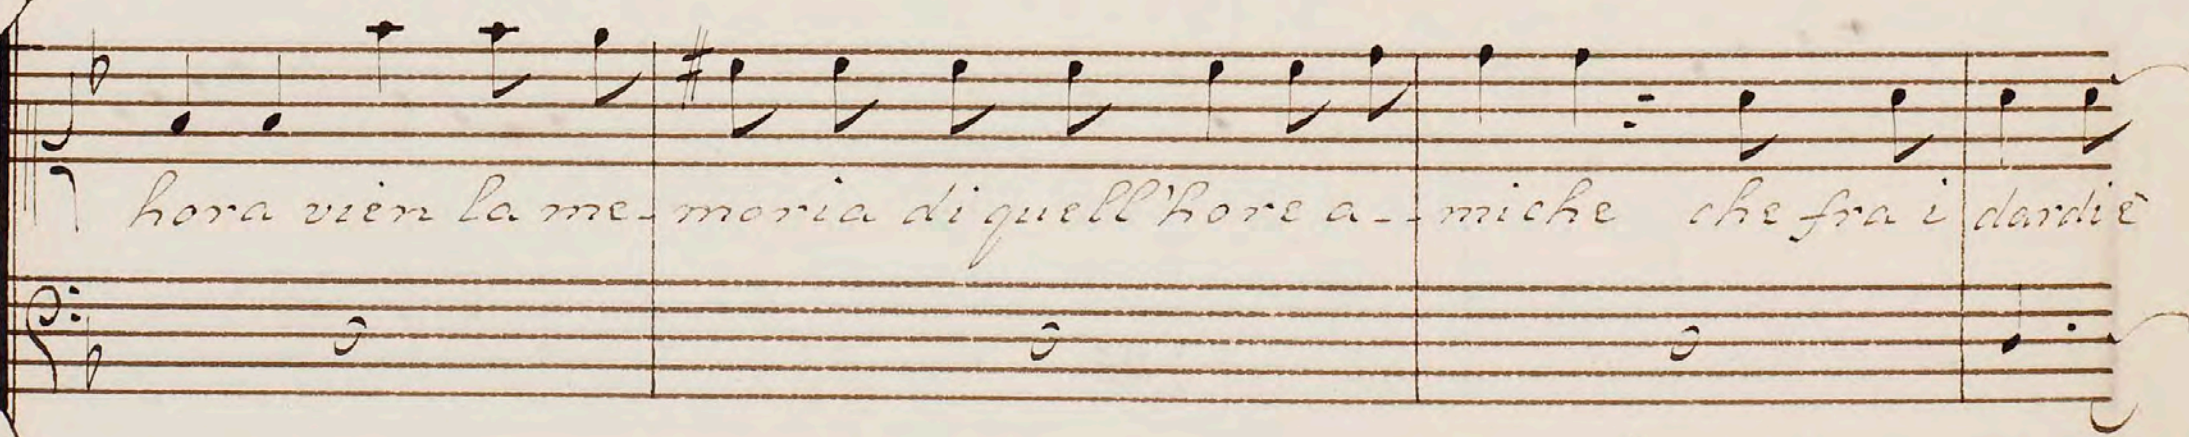 hora vien la me- moria di quell'hore a-- miche che fra i dardi è